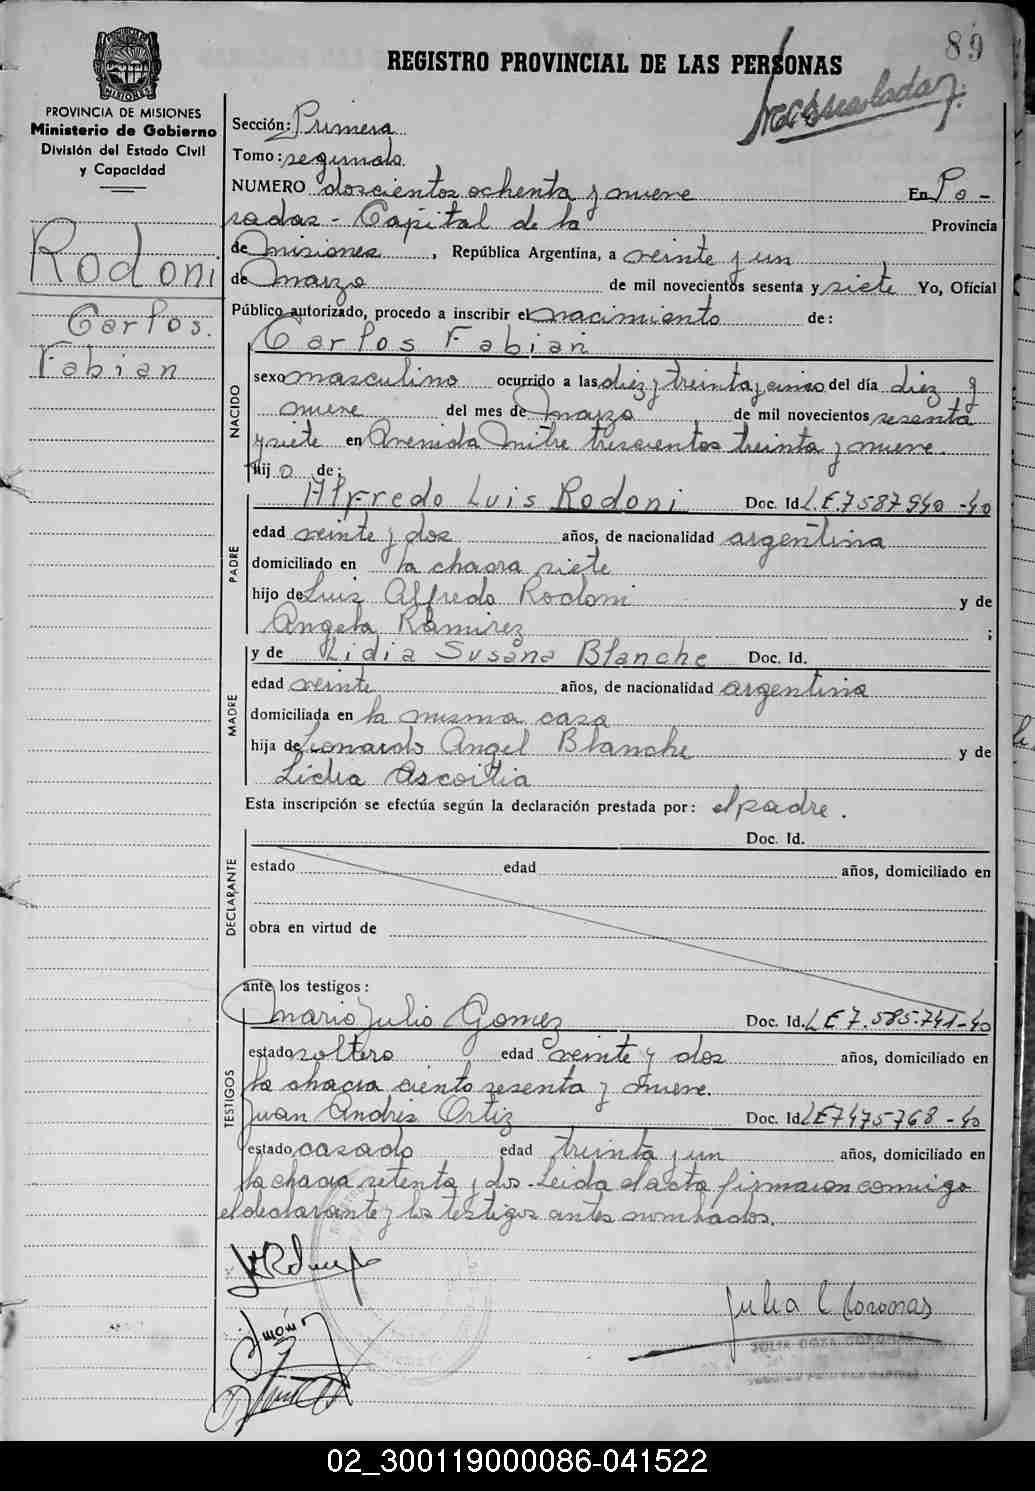 89
REGISTRO PROVINCIAL DE LAS PERSONAS
PROVINCIA DE MISIONES
Ministerio de Gobierno
División del Estado Civil
y Capacidad
Rodoni
Carlos
Fabian
Sección: Primera
Tomo: segundo
NUMERO doscientos ochenta y nueve En Po-
sadas - Capital de la Provincia
de Misiones, República Argentina, a veinte y un
de Marzo de mil novecientos sesenta y siete Yo, Oficial
Público autorizado, procedo a inscribir el nacimiento de:
Carlos Fabian
NACIDO
sexo masculino ocurrido a las diez y treinta y cinco del día diez y
nueve del mes de Marzo de mil novecientos sesenta
y siete en Avenida Mitre trescientos treinta y nueve.
hijo de:
PADRE
Alfredo Luis Rodoni Doc. Id. L.E. 7587940-40
edad veinte y dos años, de nacionalidad argentina
domiciliado en la chacra siete
hijo de Luis Alfredo Rodoni y de
Angela Ramirez ;
MADRE
y de Lidia Susana Blanche Doc. Id.
edad veinte años, de nacionalidad argentina
domiciliada en la misma casa
hija de Leonardo Angel Blanche y de
Lidia Ascoitia
Esta inscripción se efectúa según la declaración prestada por: el padre.
DECLARANTE
Doc. Id.
estado edad años, domiciliado en
obra en virtud de
ante los testigos:
TESTIGOS
Mario Julio Gomez Doc. Id. LE 7.585.741-40
estado soltero edad veinte y dos años, domiciliado en
la chacra ciento sesenta y nueve.
Juan Andres Ortiz Doc. Id. LE 7475768-40
estado casado edad treinta y un años, domiciliado en
la chacra setenta y dos. Leida el acta firmaron conmigo
el declarante y los testigos antes nombrados.
02_300119000086-041522